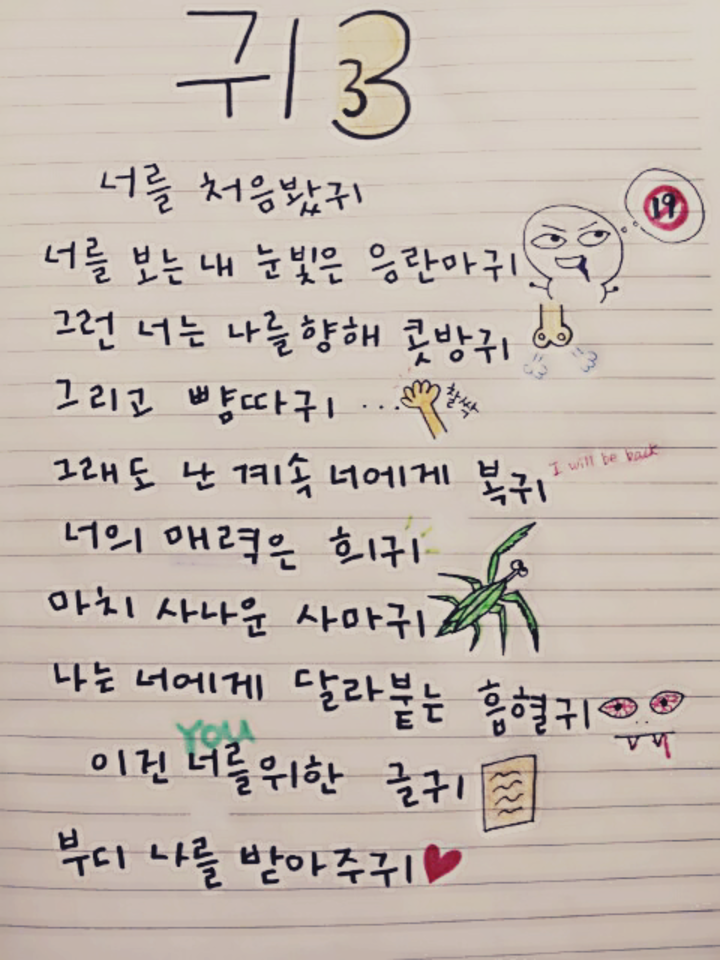 귀 3
너를 처음봤귀
19
너를 보는 내 눈빛은 응란마귀
그런 너는 나를향해 콧방귀
그리고 뺨따귀 ... 찰싹
그래도 난 계속 너에게 복귀 I will be back
너의 매력은 희귀
마치 사나운 사마귀
나는 너에게 달라붙는 흡혈귀
YOU
이건 너를위한 글귀
부디 나를 받아주귀